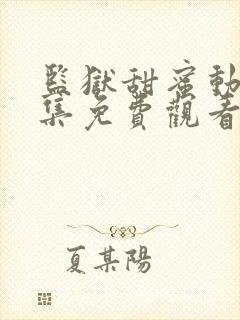 監獄甜蜜動
集免費觀看
夏某陽